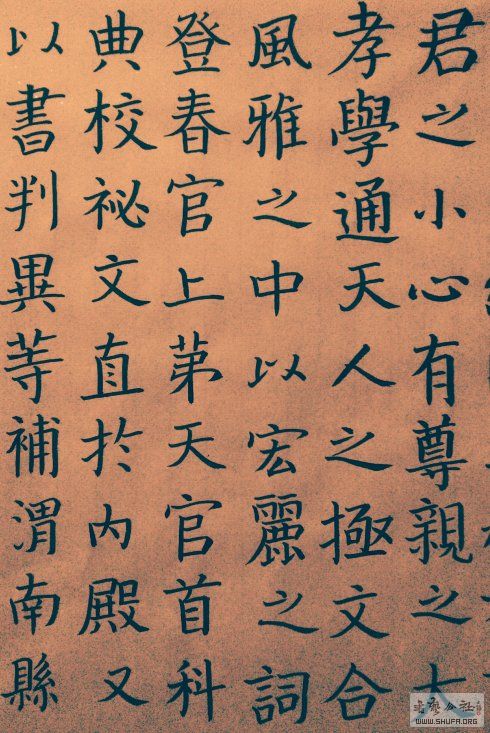 君之小心有尊親之大
孝學通天人之極文合
風雅之中以宏麗之詞
登春官上第天官首科
典校祕文直於內殿又
以書判異等補渭南縣
WWW.SHUFA.ORG